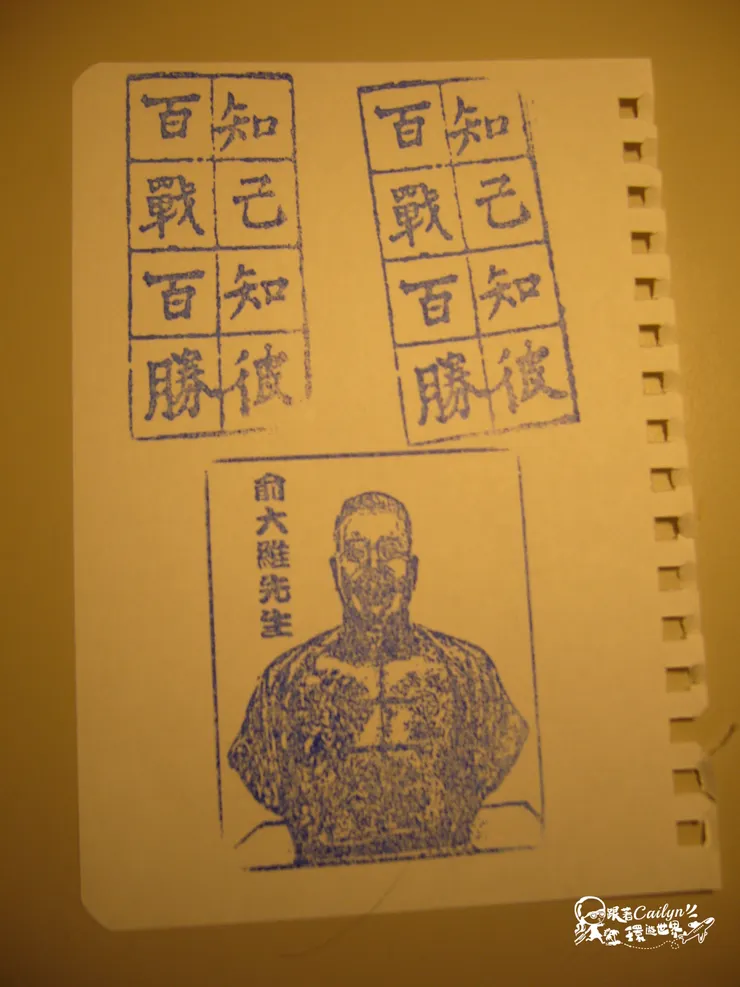 知己知彼
百戰百勝
知己知彼
百戰百勝
俞大維先生
跟著Cailyn
環遊世界